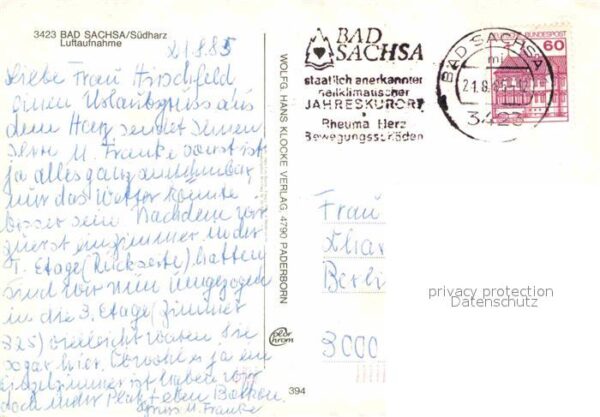 3423 BAD SACHSA/Südharz
Luftaufnahme
21.8.85
Liebe Frau Hirschfeld
einen Urlaubsgruss aus
dem Harz sendet Ihnen
Ihre M. Franke sonst ist
ja alles ganz annehmbar,
nur das Wetter könnte
besser sein. Nachdem wir
zuerst ein Zimmer in der
1. Etage (Rückseite) hatten
sind wir nun umgezogen
in die 3. Etage (Zimmer
325) vielleicht waren Sie
sogar hier. Obwohl es ja ein
Einzelzimmer ist haben wir
doch mehr Platz + eben Balkon.
Gruss M. Franke
WOLFG. HANS KLOCKE VERLAG, 4790 PADERBORN
color
chrom
394
BAD
SACHSA
staatlich anerkannter
heilklimatischer
JAHRESKURORT
Rheuma Herz
Bewegungsschäden
BAD SACHSA
21.8.85
3423
DEUTSCHE BUNDESPOST
60
Frau
Berli
3000
privacy protection
Datenschutz